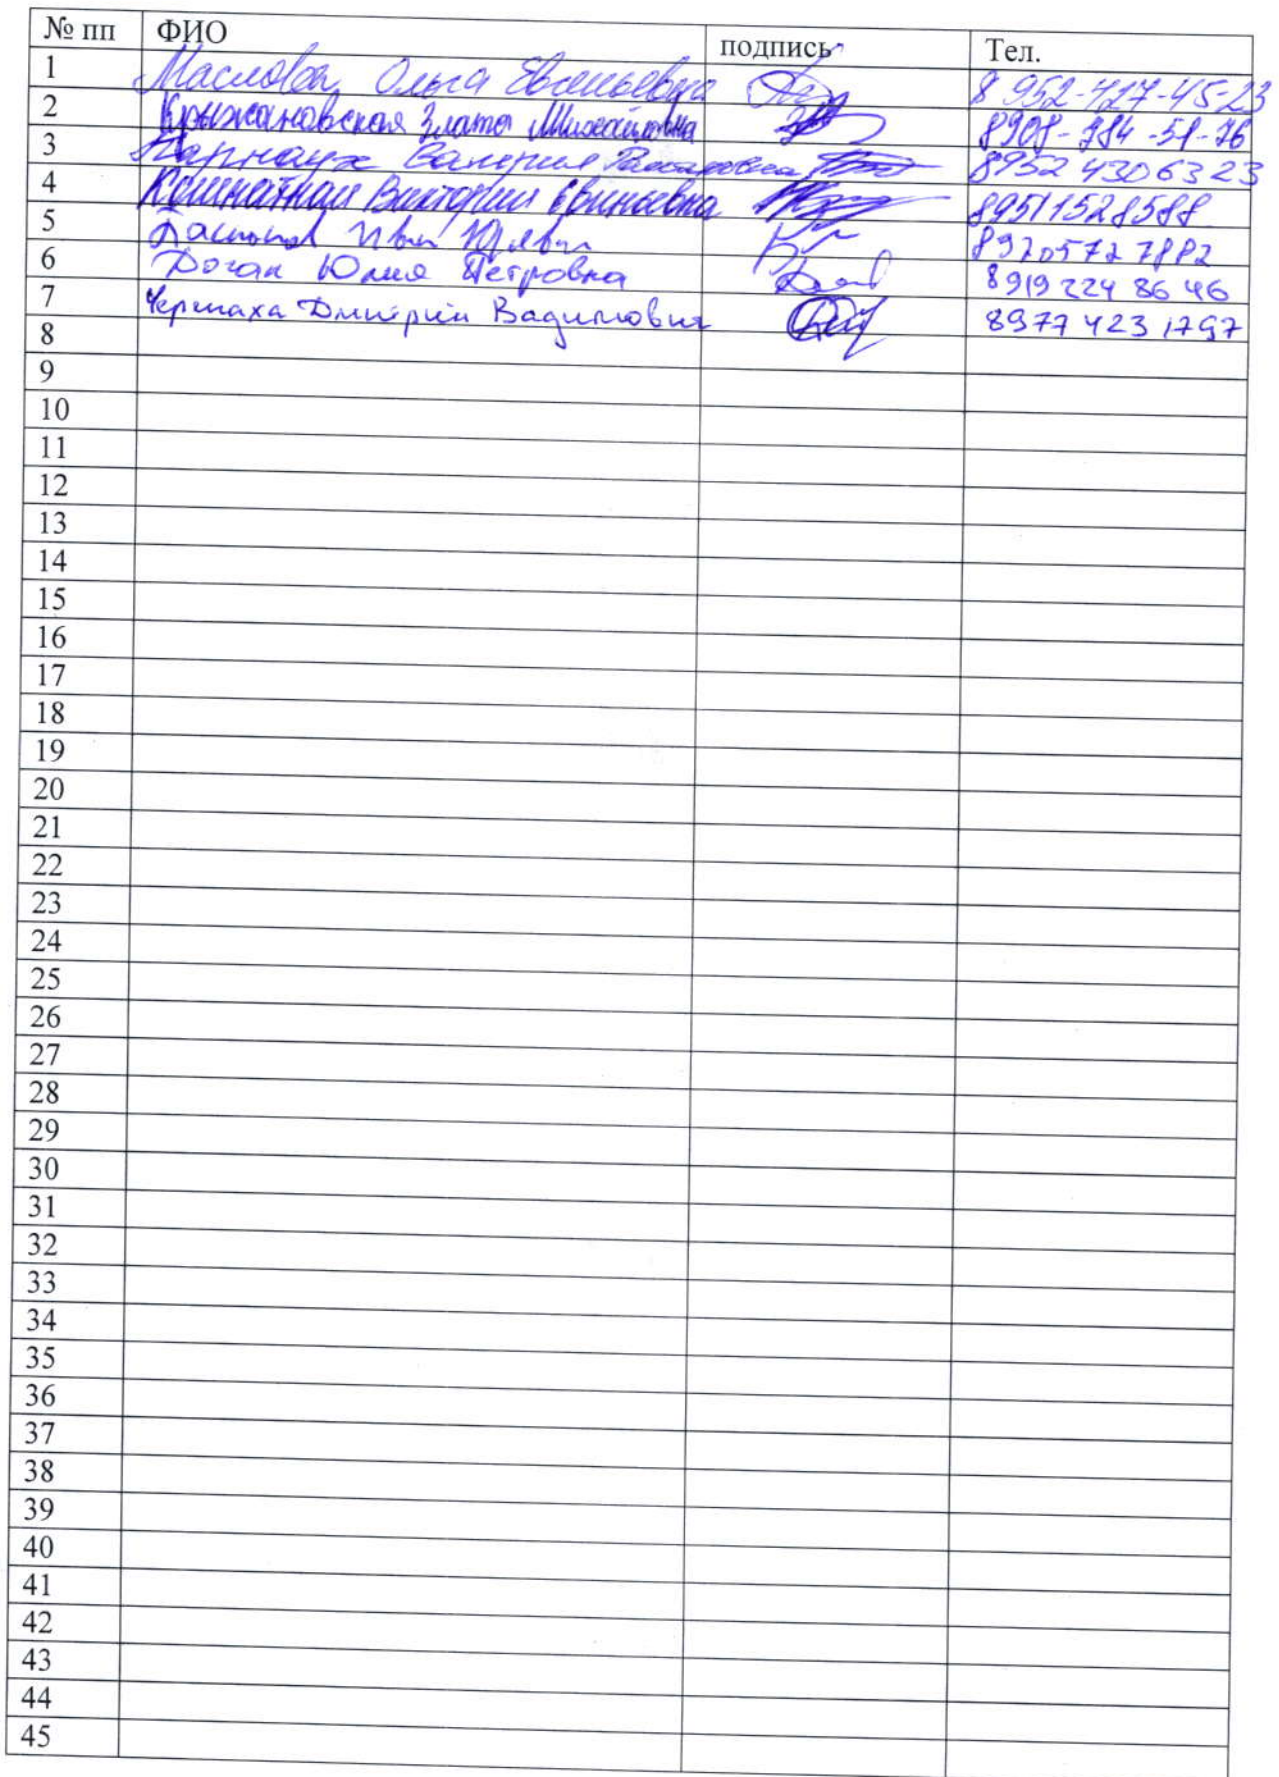 № пп ФИО подпись Тел.
1 Маслова Ольга Евгеньевна 8 952-427-45-23
2 Крыжановская Злата Михайловна 8908-784-51-76
3 Карнаух Валерия 8952 430 63 23
4 Комнатная Виктория Евгеньевна 89511528588
5 Иван Юрьевич 8920572 7882
6 Доган Юлия Петровна 8919 224 86 46
7 Черепаха Дмитрий Вадимович 8977 423 1797
8
9
10
11
12
13
14
15
16
17
18
19
20
21
22
23
24
25
26
27
28
29
30
31
32
33
34
35
36
37
38
39
40
41
42
43
44
45